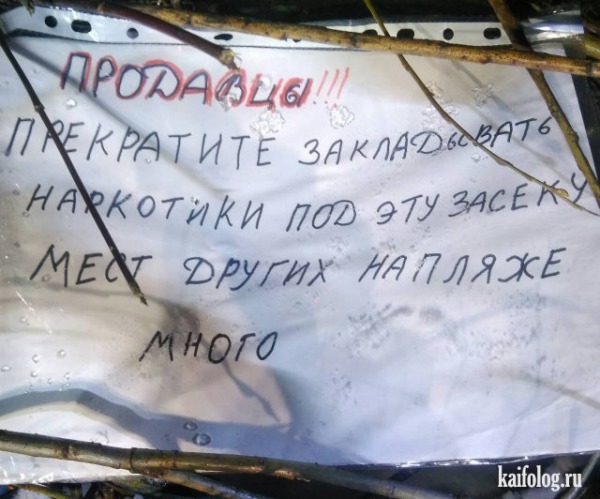 ПРОДАВЦЫ!!!
ПРЕКРАТИТЕ ЗАКЛАДЫВАТЬ
НАРКОТИКИ ПОД ЭТУ ЗАСЕКУ
МЕСТ ДРУГИХ НА ПЛЯЖЕ
МНОГО
kaifolog.ru